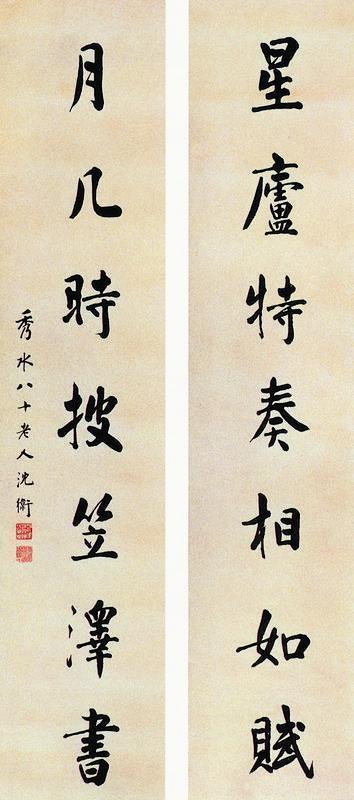 星廬特奏相如賦
月几時披笠澤書
秀水八十老人沈衛